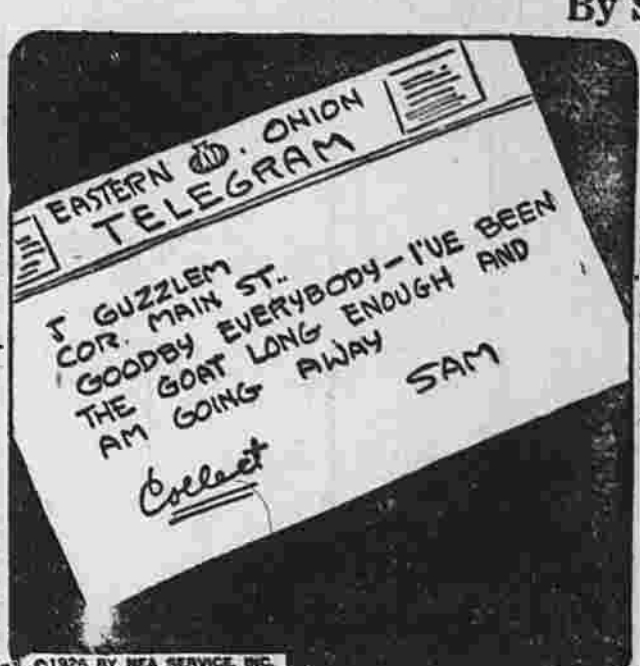 By
EASTERN . ONION
TELEGRAM
J GUZZLEM
COR. MAIN ST..
GOODBY EVERYBODY—I'VE BEEN
THE GOAT LONG ENOUGH AND
AM GOING AWAY
SAM
Collect
©1926 BY NEA SERVICE, INC.